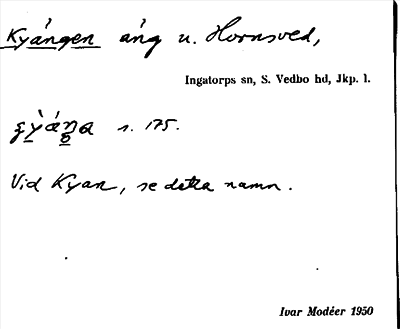 Kyángen áng u. Hornsved,
Ingatorps sn, S. Vedbo hd, Jkp. l.
s. 175.
Vid Kyan, se detta namn.
Ivar Modéer 1950